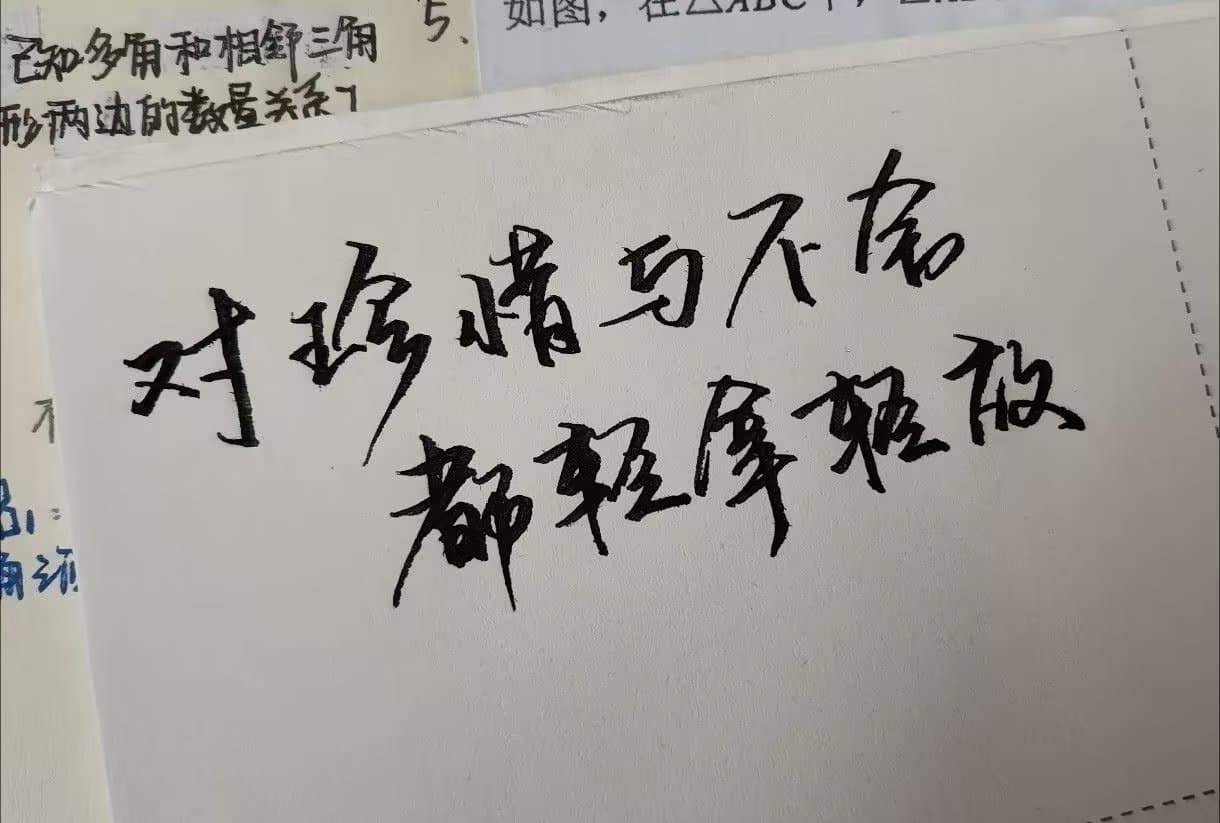 已知多角和相邻三角
形两边的数量关系
5、
如图，在△ABC中，
对珍惜与不舍
都轻拿轻放